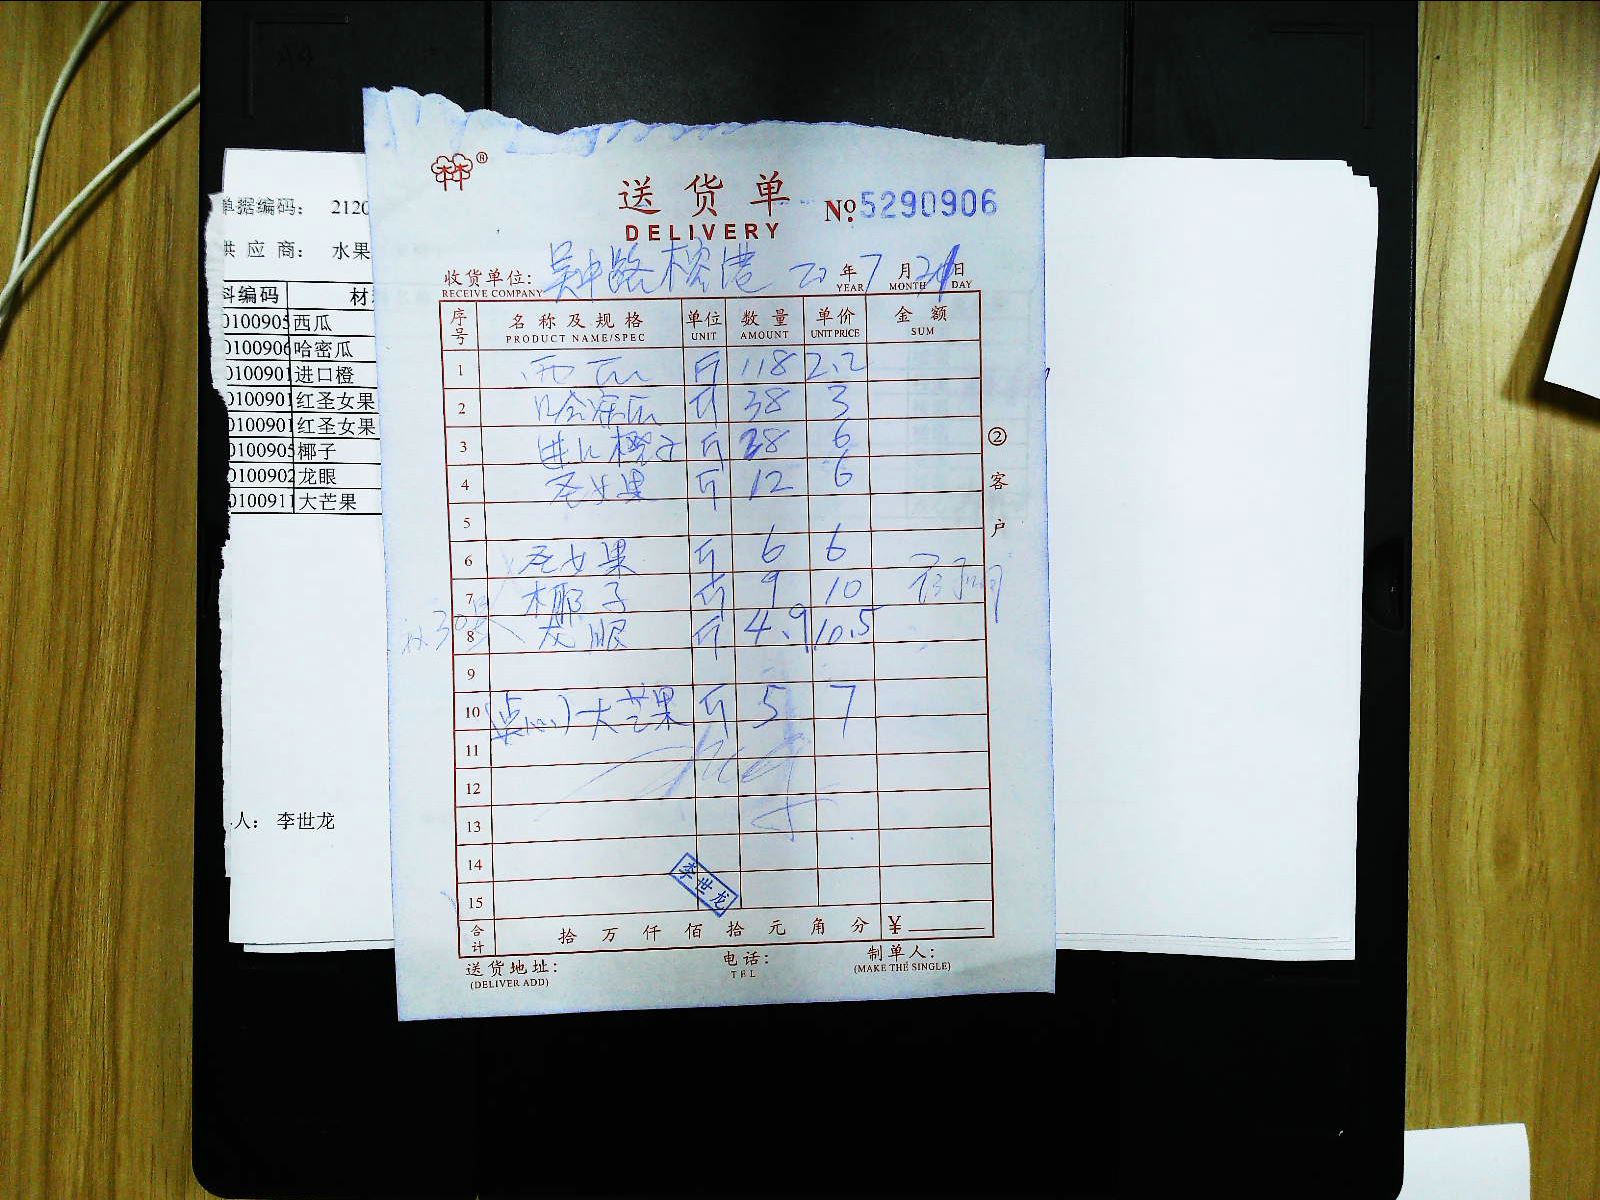 单据编码： 2120
供 应 商： 水果
料编码 材
0100905 西瓜
0100906 哈密瓜
0100901 进口橙
0100901 红圣女果
0100901 红圣女果
0100905 椰子
0100902 龙眼
0100911 大芒果
人： 李世龙
林 ®
送货单
DELIVERY
№ 5290906
收货单位： 吴中路榕港 20 年 7 月 日
RECEIVE COMPANY YEAR MONTH DAY
序号 名称及规格 单位 数量 单价 金额
PRODUCT NAME/SPEC UNIT AMOUNT UNIT PRICE SUM
1 西瓜 斤 118 2.2
2 哈密瓜 斤 38 3
3 进口橙子 斤 38 6
4 圣女果 斤 12 6
5
6 圣女果 斤 6 6
7 椰子 9 10
8 龙眼 斤 4.9 10.5
9
10 (点心)大芒果 斤 5 7
11
12
13
14
15
李世龙
合计 拾 万 仟 佰 拾 元 角 分 ¥
送货地址： 电话： 制单人：
(DELIVER ADD) TEL (MAKE THE SINGLE)
② 客户